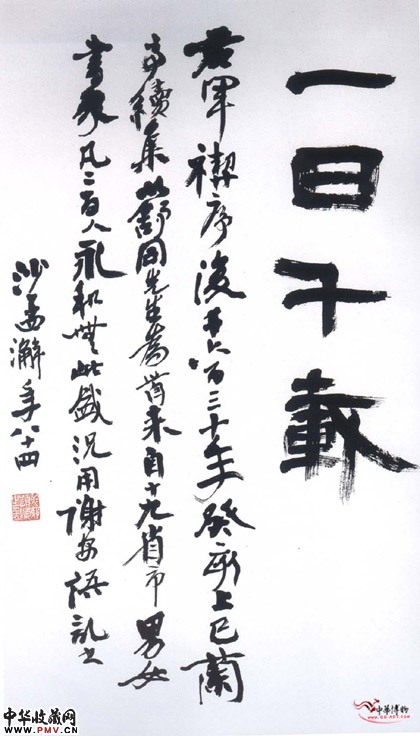 一日千載
右軍禊序後千六百三十年癸亥上巳蘭
亭續集以舒同先生為首来自十九省市男女
書家凡二百人永和無此盛况用謝安語記之
沙孟澥年八十四
中华收藏网
www.PMV.CN
中華博物
www.GG-ART.COM